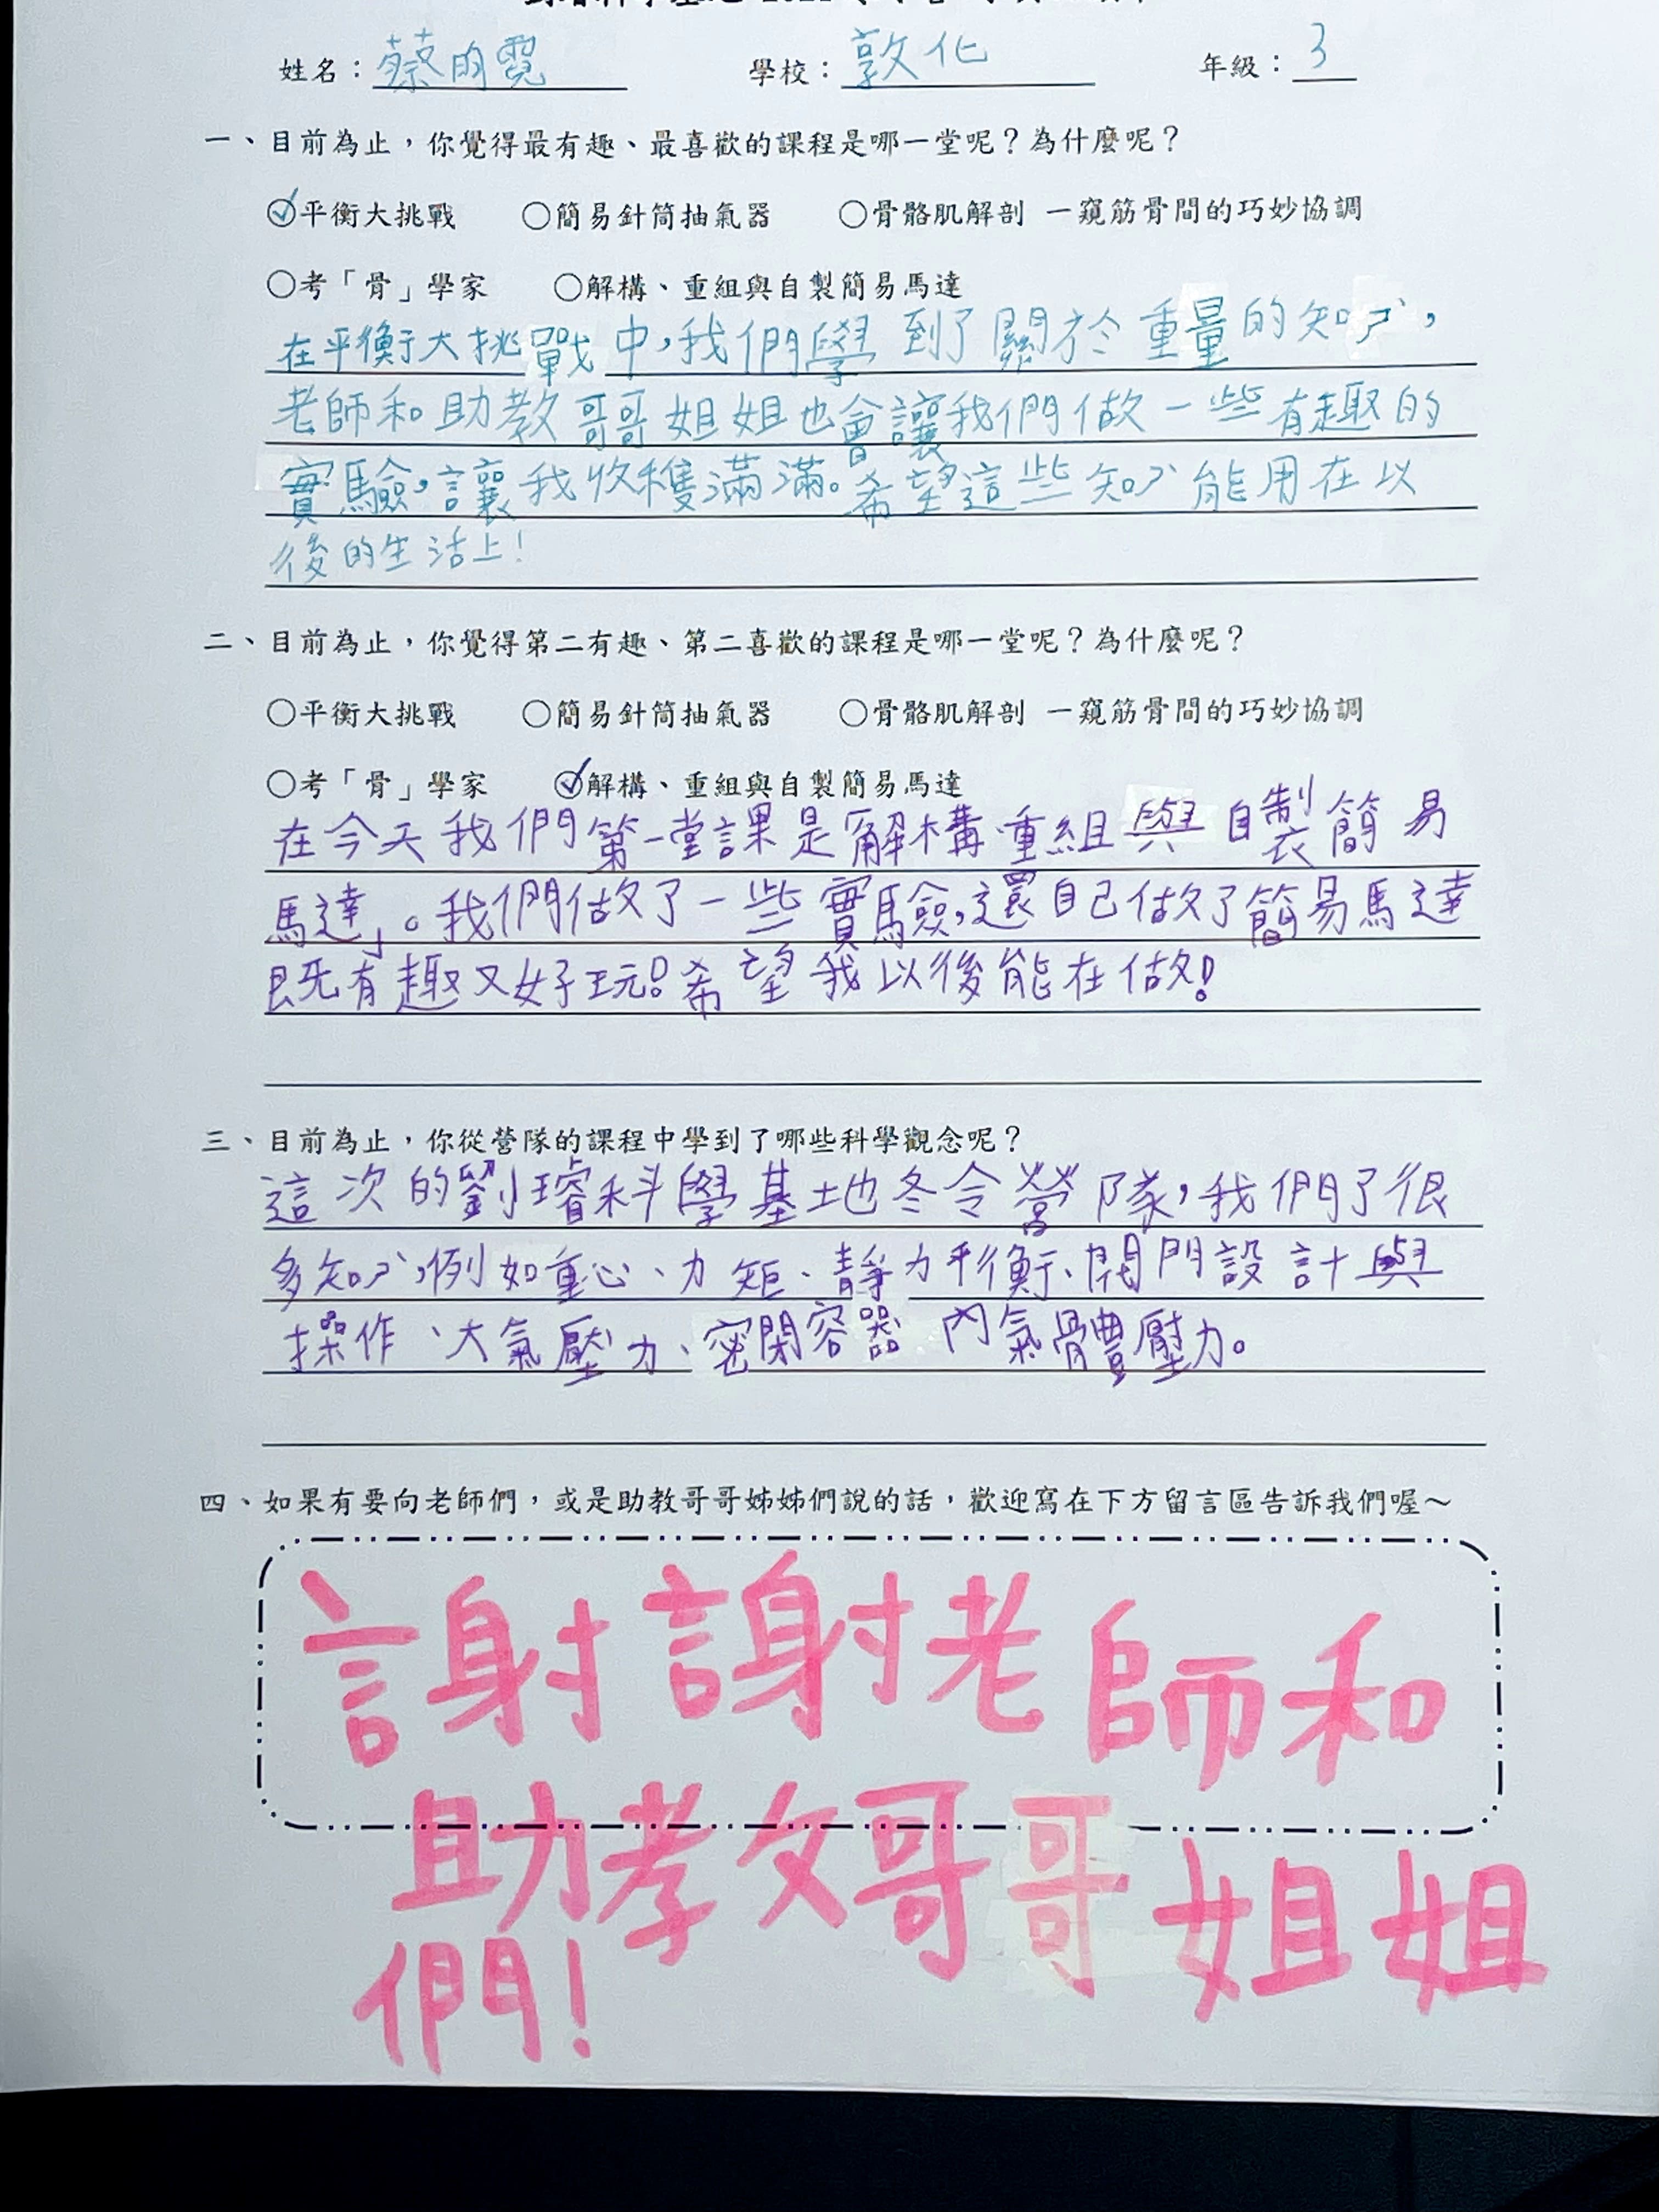 姓名：蔡昀霓 學校：敦化 年級：3
一、目前為止，你覺得最有趣、最喜歡的課程是哪一堂呢？為什麼呢？
✓平衡大挑戰 ○簡易針筒抽氣器 ○骨骼肌解剖 一窺筋骨間的巧妙協調
○考「骨」學家 ○解構、重組與自製簡易馬達
在平衡大挑戰中，我們學到了關於重量的知ㄕˋ，
老師和助教哥哥姐姐也會讓我們做一些有趣的
實驗，讓我收穫滿滿。希望這些知ㄕˋ能用在以
後的生活上！
二、目前為止，你覺得第二有趣、第二喜歡的課程是哪一堂呢？為什麼呢？
○平衡大挑戰 ○簡易針筒抽氣器 ○骨骼肌解剖 一窺筋骨間的巧妙協調
○考「骨」學家 ✓解構、重組與自製簡易馬達
在今天我們第一堂課是解構、重組與自製簡易
馬達」。我們做了一些實驗，還自己做了簡易馬達
既有趣又好玩！希望我以後能在做！
三、目前為止，你從營隊的課程中學到了哪些科學觀念呢？
這次的劉璿科學基地冬令營隊，我們了很
多知ㄕˋ，例如重心、力矩、靜力平衡、閥門設計與
操作、大氣壓力、密閉容器內氣體壓力。
四、如果有要向老師們，或是助教哥哥姊姊們說的話，歡迎寫在下方留言區告訴我們喔～
謝謝老師和
助教哥哥姐姐
們！